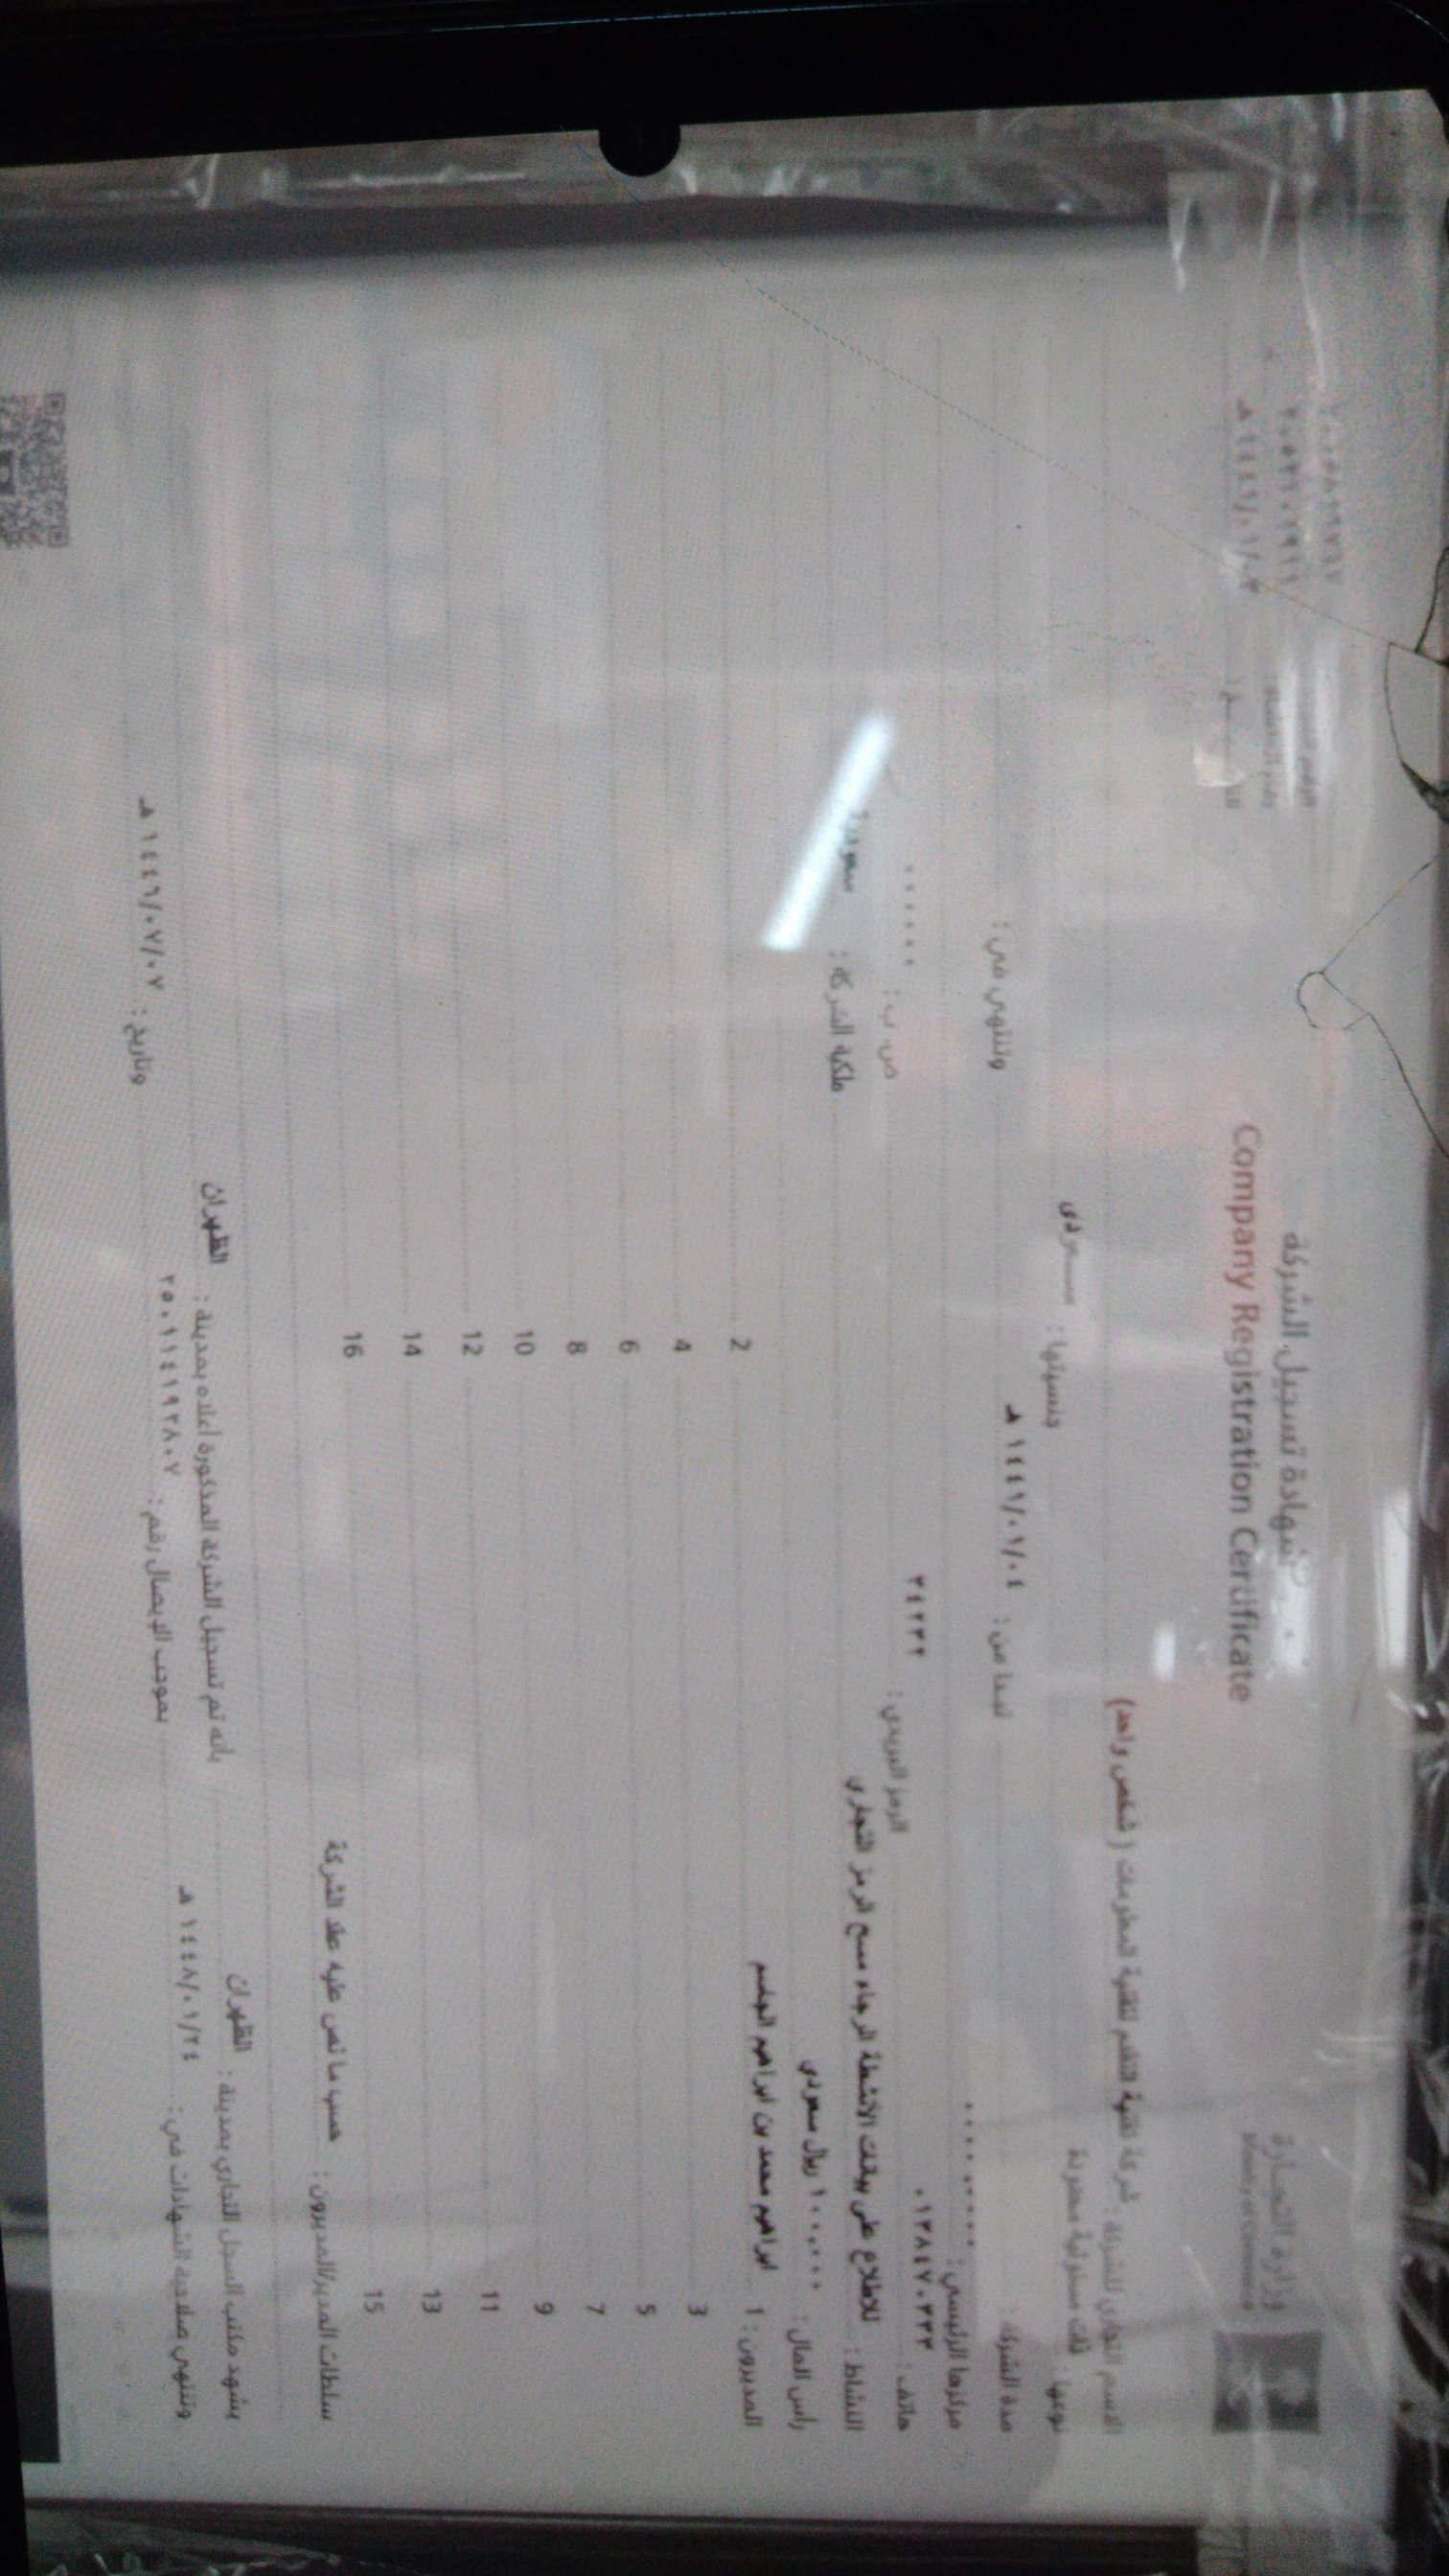 وزارة التجارة
Ministry of Commerce
شهادة تسجيل الشركة
Company Registration Certificate
الاسم التجاري للشركة : شركة تقنية
لتقنية المعلومات ( شخص واحد)
نوعها : ذات مسئولية محدودة
جنسيتها : سعودي
مدة الشركة :
تبدأ من : ١٤٤١/٠١/٠٤ هـ
وتنتهي في :
مركزها الرئيسي :
هاتف :
الرمز البريدي : ٣٤٢٣٢
ص. ب :
النشاط : للاطلاع على بيانات الأنشطة الرجاء مسح الرمز التجاري
ملكية الشركة : سعودية
رأس المال : ١٠٠,٠٠٠ ريال سعودي
المديرون : 1 ابراهيم محمد بن ابراهيم الجاسم
2
3
4
5
6
7
8
9
10
11
12
13
14
15
16
سلطات المدير/المديرون : حسب ما نص عليه عقد الشركة
يشهد مكتب السجل التجاري بمدينة : الظهران
بأنه تم تسجيل الشركة المذكورة أعلاه بمدينة : الظهران
وتنتهي صلاحية الشهادات في : ١٤٤٨/٠١/٢٤ هـ
بموجب الإيصال رقم : ٢٥٠١١٤١٩٢٨٠٧
وتاريخ : ١٤٤٦/٠٧/٠٧ هـ